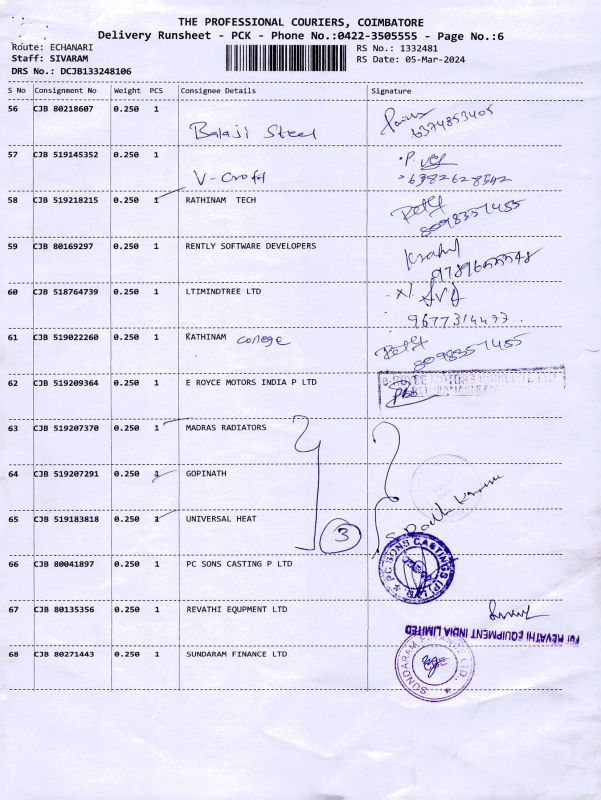 THE PROFESSIONAL COURIERS, COIMBATORE
Delivery Runsheet - PCK - Phone No.:0422-3505555 - Page No.:6
Route: ECHANARI RS No.: 1332481
Staff: SIVARAM RS Date: 05-Mar-2024
DRS No.: DCJB133248106
S No Consignment No Weight PCS Consignee Details Signature
56 CJB 80218607 0.250 1
Balaji Steel 6374853405
57 CJB 519145352 0.250 1
V-Croft 6382628542
58 CJB 519218215 0.250 1 RATHINAM TECH
8098357455
59 CJB 80169297 0.250 1 RENTLY SOFTWARE DEVELOPERS
60 CJB 518764739 0.250 1 LTIMINDTREE LTD
9677314477
61 CJB 519022260 0.250 1 RATHINAM college
8098357455
62 CJB 519209364 0.250 1 E ROYCE MOTORS INDIA P LTD
63 CJB 519207370 0.250 1 MADRAS RADIATORS
64 CJB 519207291 0.250 1 GOPINATH
65 CJB 519183818 0.250 1 UNIVERSAL HEAT
3
66 CJB 80041897 0.250 1 PC SONS CASTING P LTD
PC SONS CASTINGS (P) LTD
67 CJB 80135356 0.250 1 REVATHI EQUPMENT LTD
For REVATHI EQUIPMENT INDIA LIMITED
68 CJB 80271443 0.250 1 SUNDARAM FINANCE LTD
SUNDARAM FINANCE LTD.